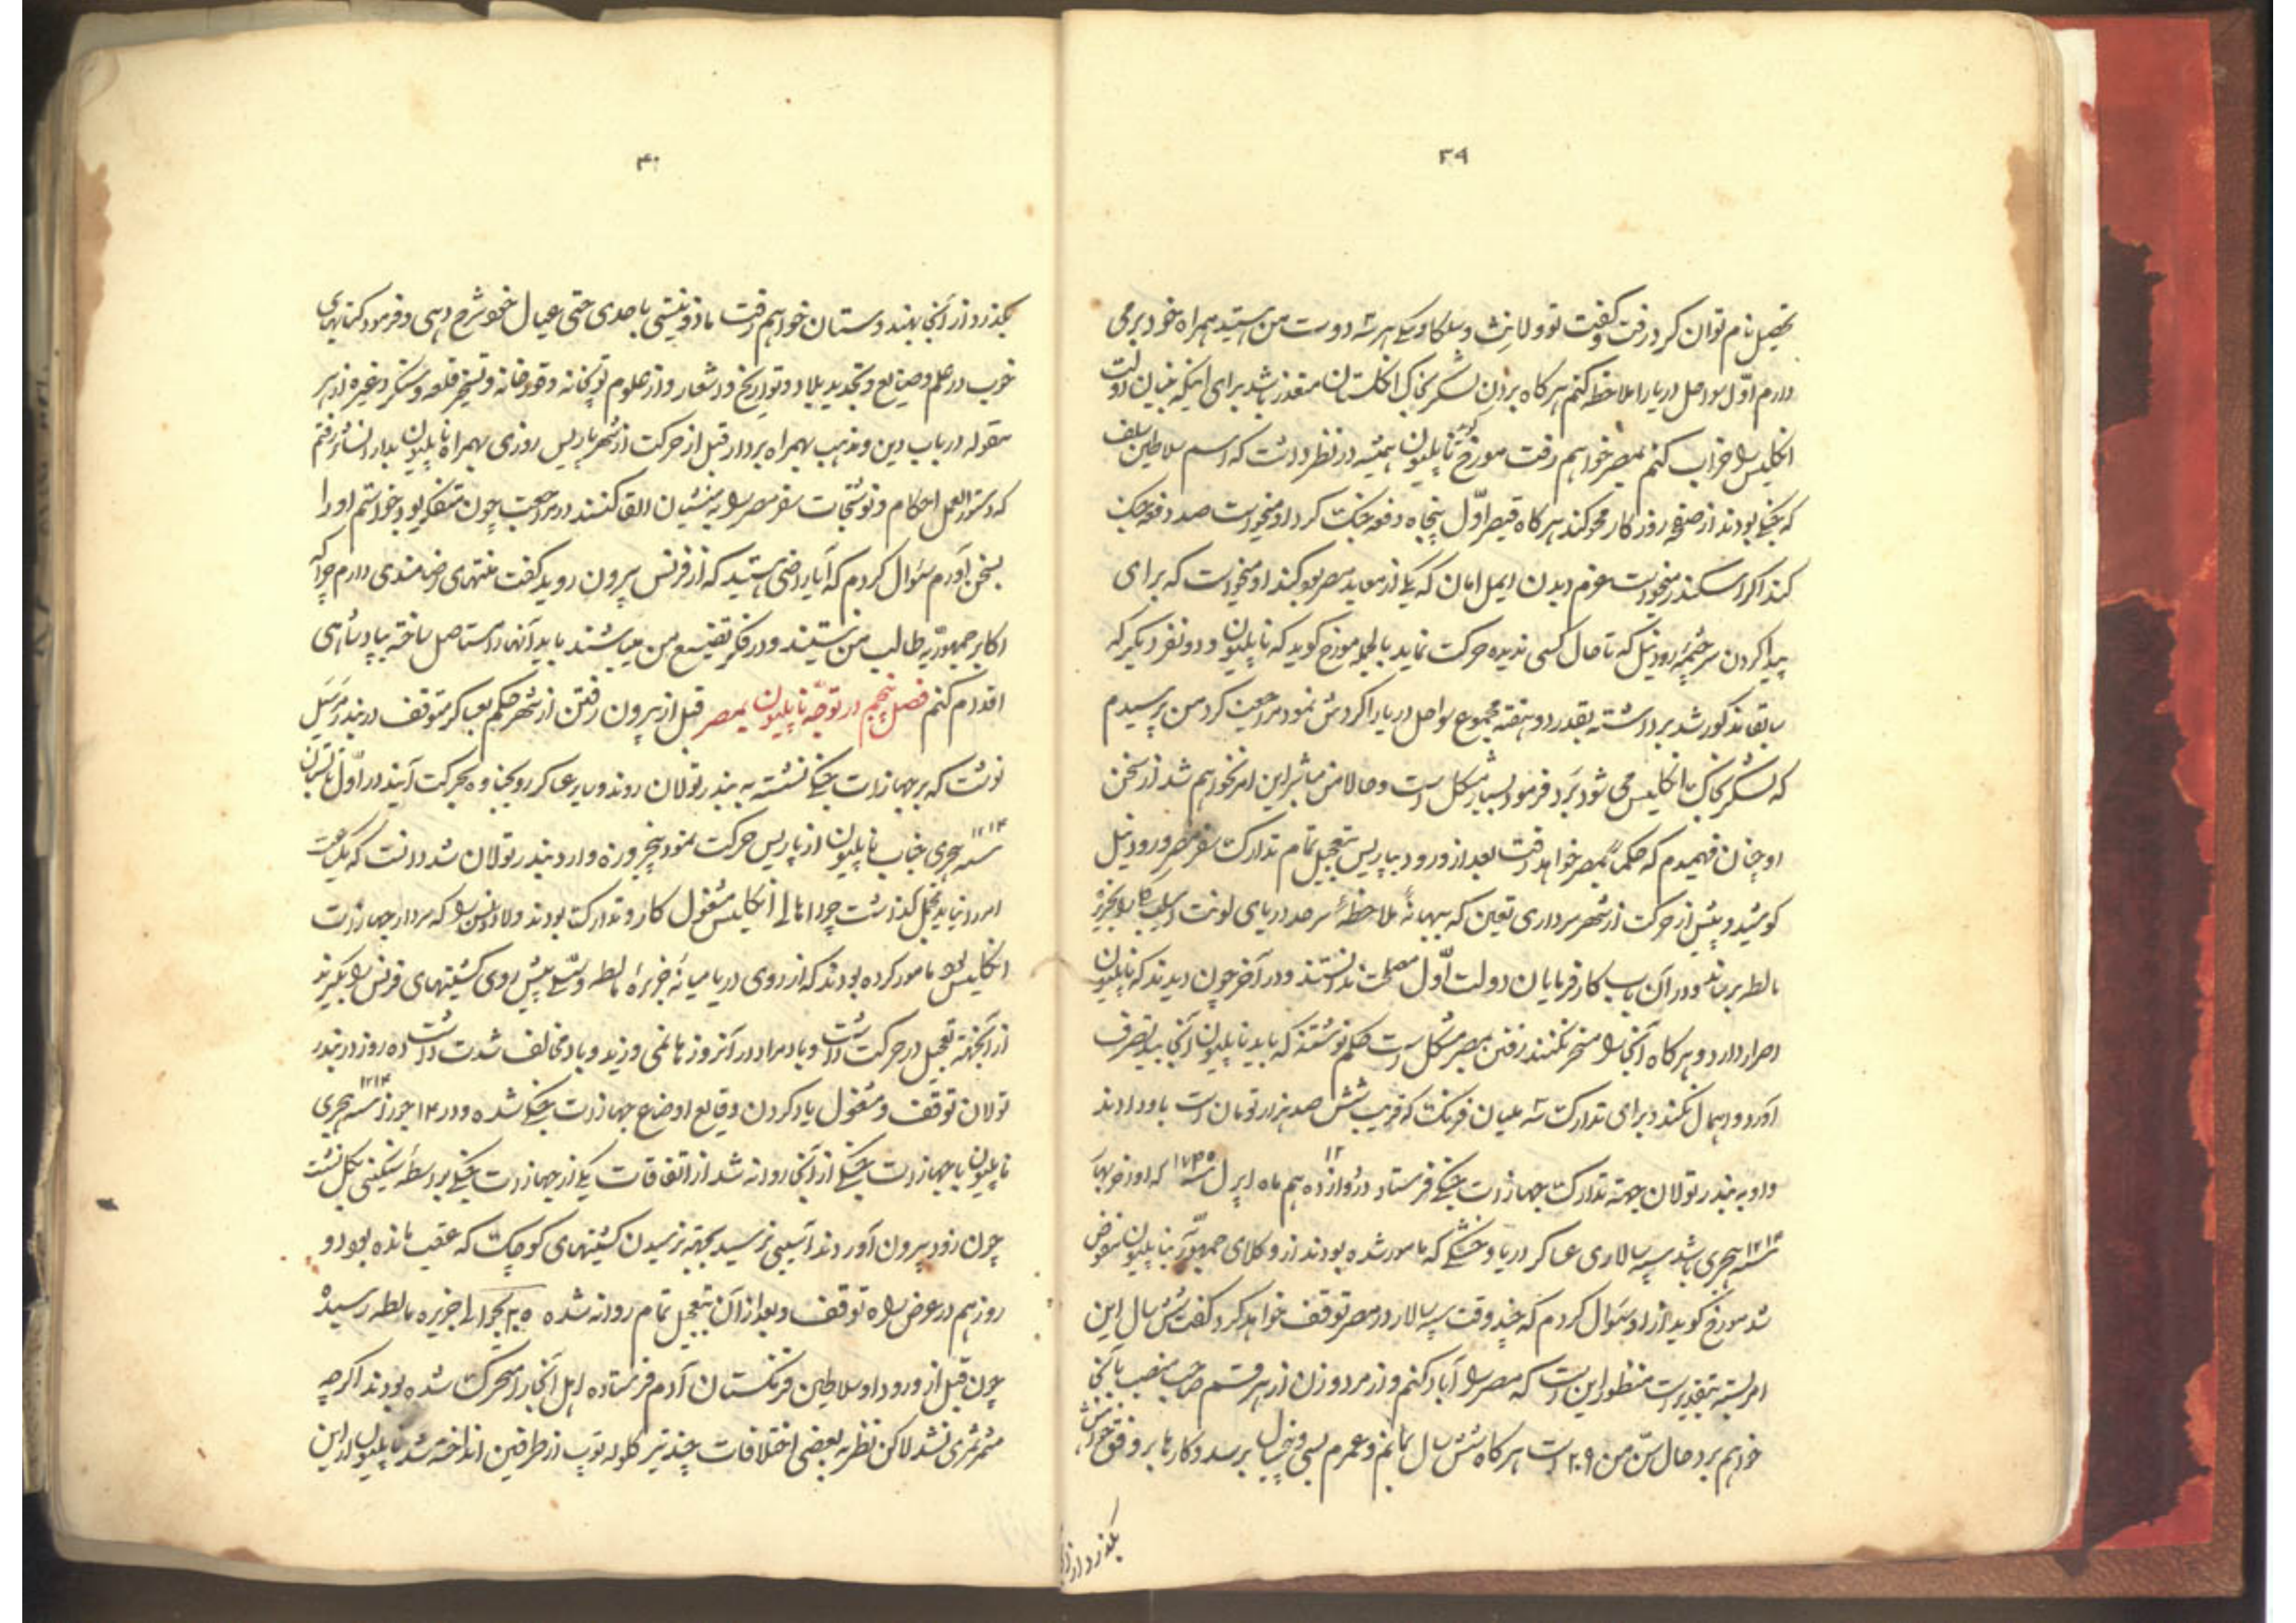 ۳۹
تحصیل نام توان کرد رفت و گفت تو و لانش و سلکاوسکی هر سه دوست من هستید همراه خود برمی
دارم اول سواحل دریا را ملاحظه کنم هرگاه بردن لشکر بخاک انگلستان متعذر باشد برای اینکه بنیان دولت
انگلیس را خراب کنم بمصر خواهم رفت مورخ گوید ناپلیون همیشه در نظر داشت که اسم سلاطین سلف
که جنگی بودند از صفحه روزگار محو کند هرگاه قیصر اول پنجاه دفعه جنگ کرد او میخواست صد دفعه جنگ
کند اگر اسکندر میخواست عزم دیدن ایمل امان که یکی از معابد مصر بود کند او میخواست که برای
پیدا کردن سرچشمه رود نیل که تا حال کسی ندیده حرکت نماید بالجمله مورخ گوید که ناپلیون و دو نفر دیگر که
سابقا مذکور شد برداشته بقدر دو هفته مجموع سواحل دریا را گردش نمود مراجعت کرد من پرسیدم
که لشکر بخاک انگلیس می شود برد فرمود بسیار مشکل است و حالا من مباشر این امر نخواهم شد از سخن
او چنان فهمیدم که حکماً بمصر خواهد رفت بعد از ورود بپاریس بتعجیل تمام تدارک سفر مصر و رود نیل
کوشید و پیش از حرکت از شهر سرداری تعین که ببهانهٔ ملاحظهٔ سرحد دریای لونت بجزیره
مالطه برساند و در آن باب کارفرمایان دولت اول مصلحت ندانستند و در آخر چون دیدند که ناپلیون
اصرار دارد و هرگاه آنجا را مسخر نکنند رفتن بمصر مشکل است حکم نوشتند که باید ناپلیون آنجا بتصرف
آورد و اهمال نکند و برای تدارک سه ملیان فرنگ که قریب شش صد هزار تومان است باو دادند
واو به بندر تولان جهته تدارک جهازات جنگی فرستاد در دوازدهم ۱۲ ماه اپرل سنه ۱۷۹۵ که
سنه ۱۲۱۳ هجری باشد سپه سالاری عساکر دریا و خشکی که مامور شده بودند از وکلای جمهوریه بناپلیون مفوض
شد مورخ گوید از او سؤال کردم که چند وقت سپه سالار در مصر توقف خواهد کرد گفت شش سال این
امر بسته بتقدیر است منظور این است که مصر را آباد کنم و از مرد و زن از هر قسم صاحب منصب بآنجا
خواهم برد حال سن من ۲۹ است هرگاه شش سال بمانم و عمرم بسی و پنج سال برسد و کارها بر وفق خواهش
بگذرد از آنجا
۴۰
بگذرد از آنجا بهندوستان خواهم رفت ماذون نیستی باحدی حتی بعیال خود شرح دهی و فرمود کتابهای
خوب در علم و صنایع و تجدید بلاد و تواریخ و اشعار و از علوم توپخانه و قورخانه و تسخیر قلعه و سنگر و غیره از هر
مقوله در باب دین و مذهب بهمراه بردار قبل از حرکت از شهر پاریس روزی بهمراه ناپلیون بدار انشا رفتم
که دستور العمل احکام و نوشتجات سفر مصر را به منشیان القا کنند در مراجعت چون متفکر بود خواستم او را
بسخن آورم سؤال کردم که آیا راضی هستید که از فرنس بیرون روید گفت منتهای رضامندی دارم چرا که
اکابر جمهوریه طالب من نیستند و در فکر تضییع من میباشند باید آنها را مستاصل ساخته بپادشاهی
اقدام کنم فصل پنجم در توجه ناپلیون بمصر قبل از بیرون رفتن از شهر حکم بعساکر متوقف در بندر مرسیل
نوشت که بر جهازات جنگی نشسته به بندر تولان روند و سایر عساکر و بحرکت آیند در اول تابستان
سنه ۱۲۱۳ هجری جناب ناپلیون از پاریس حرکت نمود پنجروزه وارد بندر تولان شد دانست که یک ساعت
امر را نباید بتجمل گذاشت چرا اهالی انگلیس مشغول کار و تدارک بودند و لارد نلسن را که سردار جهازات
انگلیس بود مامور کرده بودند که از روی دریا میانه جزیرهٔ مالطه و سسلی پیش روی کشتیهای فرنس را بگیرند
از آنجهة تعجیل در حرکت داشت و باد مراد در آنروزها نمی وزید و باد مخالف شدت داشت ده روز در بندر
تولان توقف و مشغول یاد کردن وقایع اوضاع جهازات جنگی شده و در ۱۳ جوزا سنه ۱۲۱۳ هجری
ناپلیون با جهازات جنگی از آنجا روانه شد از اتفاقات یکی از جهازات جنگی بواسطهٔ سنگینی بگل نشست
چون زود بیرون آوردند آسیبی نرسید بجهته نرسیدن کشتیهای کوچک که عقب مانده بود دو
روز هم در عرض راه توقف و بعد از آن بتعجیل تمام روانه شده ۲۵ بحوالی جزیره مالطه رسیده
چون قبل از ورود او سلاطین فرنگستان آدم فرستاده اهل آنجا را محرک شده بودند اگرچه
مثمر ثمری نشد لاکن نظر به بعضی اختلافات چند تیر گلوله توپ از طرفین انداخته شد ناپلیون از این